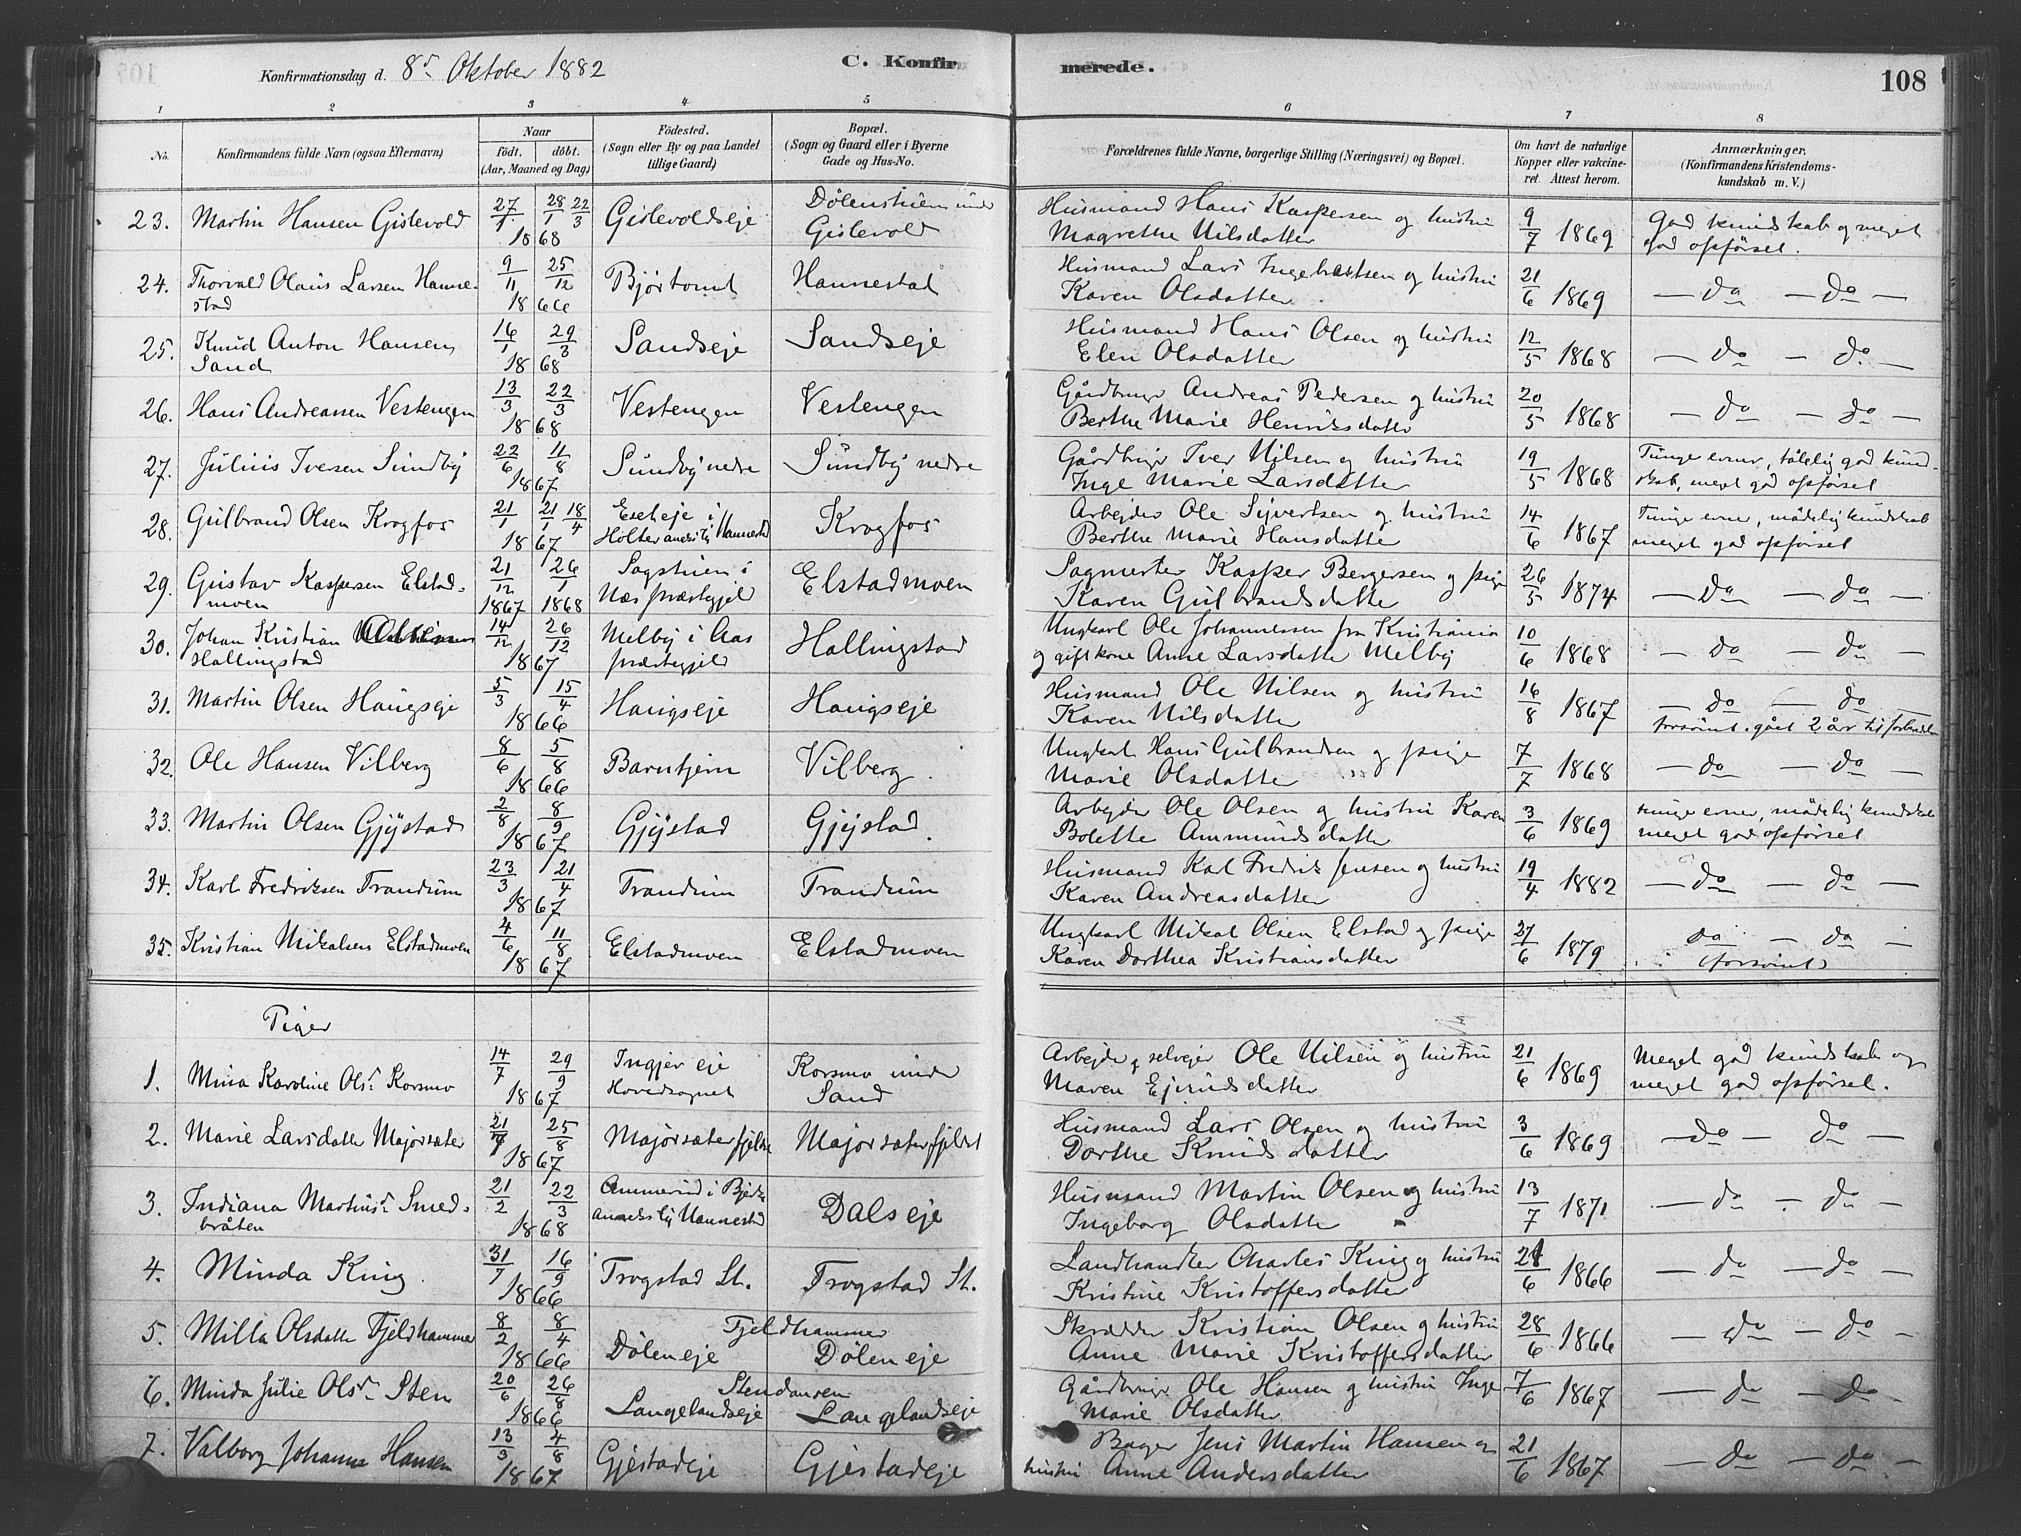 Konfirmationsdag d. 8de Oktober 1882 C. Konfirmerede. 108
1 2 3 4 5 6 7 8
No. Konfirmandens fulde Navn (ogsaa Efternavn) Naar født. døbt. (Aar, Maaned og Dag) Fødested. (Sogn eller By og paa Landet tillige Gaard) Bopæl. (Sogn og Gaard eller i Byerne Gade og Hus-No. Forældrenes fulde Navne, borgerlige Stilling (Næringsvei) og Bopæl. Om havt de naturlige Kopper eller vakcineret. Attest herom. Anmærkninger. (Konfirmandens Kristendomskundskab m. V.)
23. Martin Hansen Gislevold 27/1 28/1 22/3 1868 Gislevoldseje Dølenstuen under Gislevold Husmand Hans Kaspersen og hustru Magrethe Nilsdatter 9/7 1869 God kundskab og meget god opførsel.
24. Thorvald Olaus Larsen Hannestad 9/11 25/12 1866 Bjørtomt Hannestad Husmand Lars Ingebretsen og hustru Karen Olsdatter 21/6 1869 — do — do —
25. Knud Anton Hansen Sand 16/1 29/3 1868 Sandseje Sandseje Husmand Hans Olsen og hustru Elen Olsdatter 12/5 1868 — do — do —
26. Hans Andreassen Vestengen 13/3 22/3 1868 Vestengen Vestengen Gårdbruger Andreas Pedersen og hustru Berthe Marie Henriksdatter 20/5 1868 — do — do —
27. Julius Iversen Sundby 22/6 11/8 1867 Sundby nedre Sundby nedre Gårdbruger Iver Nilsen og hustru Inge Marie Larsdatter 19/5 1868 Tunge evner, tålelig god kundskab, meget god opførsel
28. Gulbrand Olsen Krogfos 21/1 21/1 18/4 1867 Eseteje i Holter aneks til Nannestad Krogfos Arbejder Ole Syvertsen og hustru Berthe Marie Hansdatter 14/6 1867 Tunge evner, mådelig kundskab meget god opførsel
29. Gustav Kaspersen Elstadmoen 21/12 1867 26/1 1868 Sagstuen i Næs præstegjeld Elstadmoen Sagmester Kasper Bergersen og pige Karen Gulbrandsdatter 26/5 1874 — do — do —
30. Johan Kristian Hallingstad 14/12 26/12 1867 Melby i Aas præstegjeld Hallingstad Ungkarl Ole Johannessen fra Kristiania og gift kone Anne Larsdatter Melby 10/6 1868 — do — do —
31. Martin Olsen Haugseje 5/3 15/4 1866 Haugseje Haugseje Husmand Ole Nilsen og hustru Karen Nilsdatter 16/8 1867 — do — do — forsømt. gået 2 år til forberedelse
32. Ole Hansen Vilberg 8/6 5/8 1866 Barntjern Vilberg. Ungkarl Hans Gulbrandsen og pige Marie Olsdatter 7/7 1868 — do — do —
33. Martin Olsen Gjystad 2/8 8/9 1867 Gjystad Gjystad. Arbejder Ole Olsen og hustru Karen Bolette Ammundsdatter 3/6 1869 tunge evner, mådelig kundskab meget god opførsel
34. Karl Fredriksen Trandum 23/3 21/4 1867 Trandum Trandum Husmand Karl Fredrik Jensen og hustru Karen Andreasdatter 19/4 1882 — do — do —
35. Kristian Mikalsen Elstadmoen 4/6 11/8 1867 Elstadmoen Elstadmoen Ungkarl Mikal Olsen Elstad og pige Karen Dorthea Kristiansdatter 27/6 1879 do — do — (forsømt)
Piger
1. Mina Karoline Olsdr Korsmo 14/7 29/9 1867 Ingjer eje Hovedsognet Korsmo under Sand Arbejder og selvejer Ole Nilsen og hustru Maren Ejvindsdatter 21/6 1869 Meget god kundskab og meget god opførsel.
2. Marie Larsdatter Majorsæter 21/7 25/8 1867 Majorsæterfjeldet Majorsæterfjeldet Husmand Lars Olsen og hustru Dorthe Knudsdatter 3/6 1869 — do — do —
3. Indiana Martinsdr Smedbråten 21/2 22/3 1868 Ammerud i Bjerke aneks til Nannestad Dalseje Husmand Martin Olsen og hustru Ingeborg Olsdatter 13/7 1871 — do — do —
4. Minda King. 31/7 16/9 1866 Trogstad St. Trogstad St. Landhandler Charles King og hustru Kristine Kristoffersdatter 21/6 1866 — do — do —
5. Milla Olsdatter Fjeldhammer 8/2 8/4 1866 Døleneje Fjeldhammer Døleneje Skrædder Kristian Olsen og hustru Anne Marie Kristoffersdatter 28/6 1866 — do — do —
6. Minda Julie Olsdr Sten 20/6 26/8 1866 Langelandseje Stendansen Langelandseje Gårdbruger Ole Hansen og hustru Inge Marie Olsdatter 7/6 1867 — do — do —
7. Valborg Johanne Hansen 13/3 4/8 1867 Gjestadeje Gjestadeje Bager Jens Martin Hansen og hustru Anne Andersdatter 21/6 1867 — do — do —